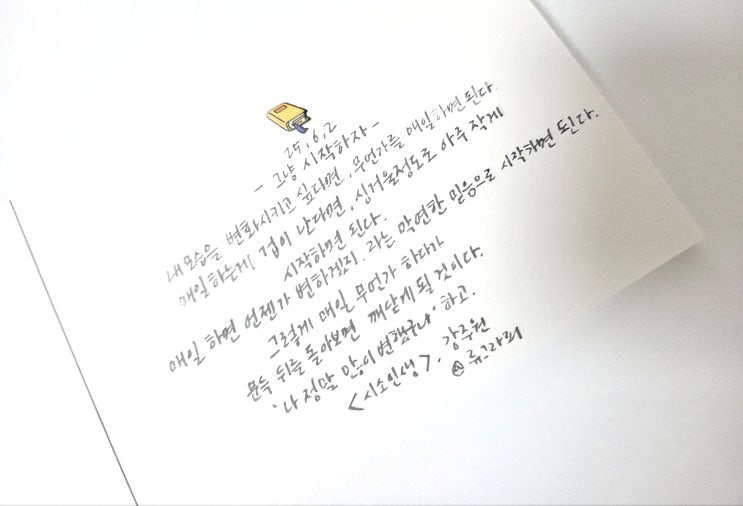 25.6.2
- 그냥 시작하자 -
내 모습을 변화시키고 싶다면, 무언가를 매일 하면 된다.
매일 하는게 겁이 난다면, 싱거울정도로 아주 작게
시작하면 된다.
매일 하면 언젠가 변하겠지. 라는 막연한 믿음으로 시작하면 된다.
그렇게 매일 무언가 하다가
문득 뒤를 돌아보면 깨닫게 될 것이다.
'나 정말 많이 변했구나' 하고.
<시소인생>. 강주원